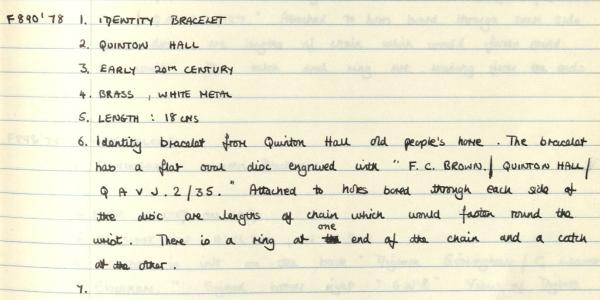 F890'78 1. IDENTITY BRACELET
2. QUINTON HALL
3. EARLY 20TH CENTURY
4. BRASS, WHITE METAL
5. LENGTH : 18 CMS
6. Identity bracelet from Quinton Hall old people's home. The bracelet
has a flat oval disc engraved with "F. C. BROWN./ QUINTON HALL/
Q A V J. 2/35." Attached to holes bored through each side of
the disc are lengths of chain which would fasten round the
wrist. There is a ring at one end of the chain and a catch
at the other.
7.